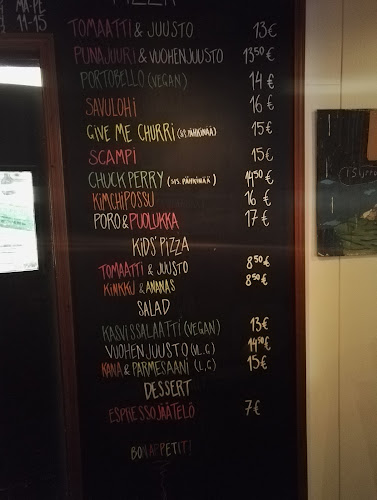 MA-PE
11-15
PIZZA
TOMAATTI & JUUSTO 13€
PUNAJUURI & VUOHENJUUSTO 13⁵⁰€
PORTOBELLO (VEGAN) 14 €
SAVULOHI 16 €
GIVE ME CHURRI (SIS. PÄHKINÄÄ) 15€
SCAMPI 15€
CHUCK PERRY (SIS. PÄHKINÄÄ) 14⁵⁰€
KIMCHIPOSSU 16 €
PORO & PUOLUKKA 17 €
KIDS' PIZZA
TOMAATTI & JUUSTO 8⁵⁰€
KINKKU & ANANAS 8⁵⁰€
SALAD
KASVISSALAATTI (VEGAN) 13€
VUOHENJUUSTO (VL.G) 14⁵⁰€
KANA & PARMESAANI (L,G) 15€
DESSERT
ESPRESSOJÄÄTELÖ 7€
BON APPETIT!